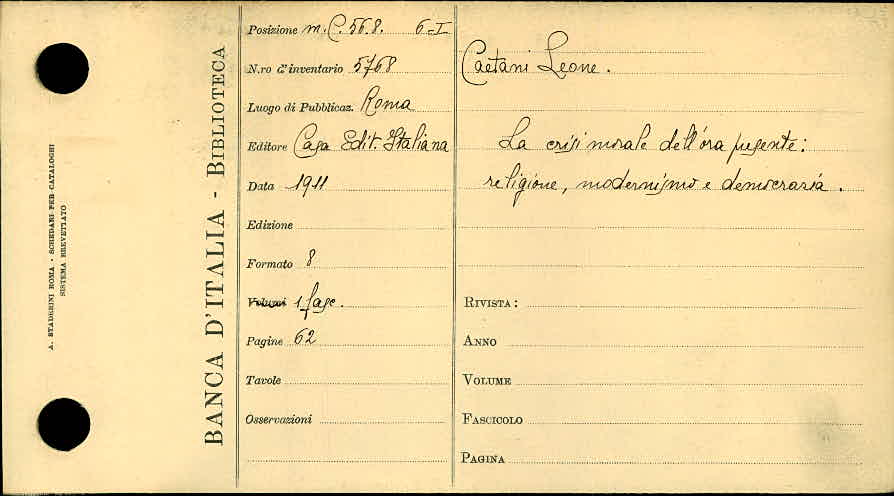 A. STADERINI ROMA - SCHEDARI PER CATALOGHI
SISTEMA BREVETTATO
BANCA D'ITALIA - BIBLIOTECA
Posizione m. C. 56.8. 6-I
N.ro d'inventario 5768
Luogo di Pubblicaz. Roma
Editore Casa Edit. Italiana
Data 1911
Edizione
Formato 8
Volumi 1 fasc.
Pagine 62
Tavole
Osservazioni
Caetani Leone.
La crisi morale dell'ora presente:
religione, modernismo e democrazia.
RIVISTA:
ANNO
VOLUME
FASCICOLO
PAGINA